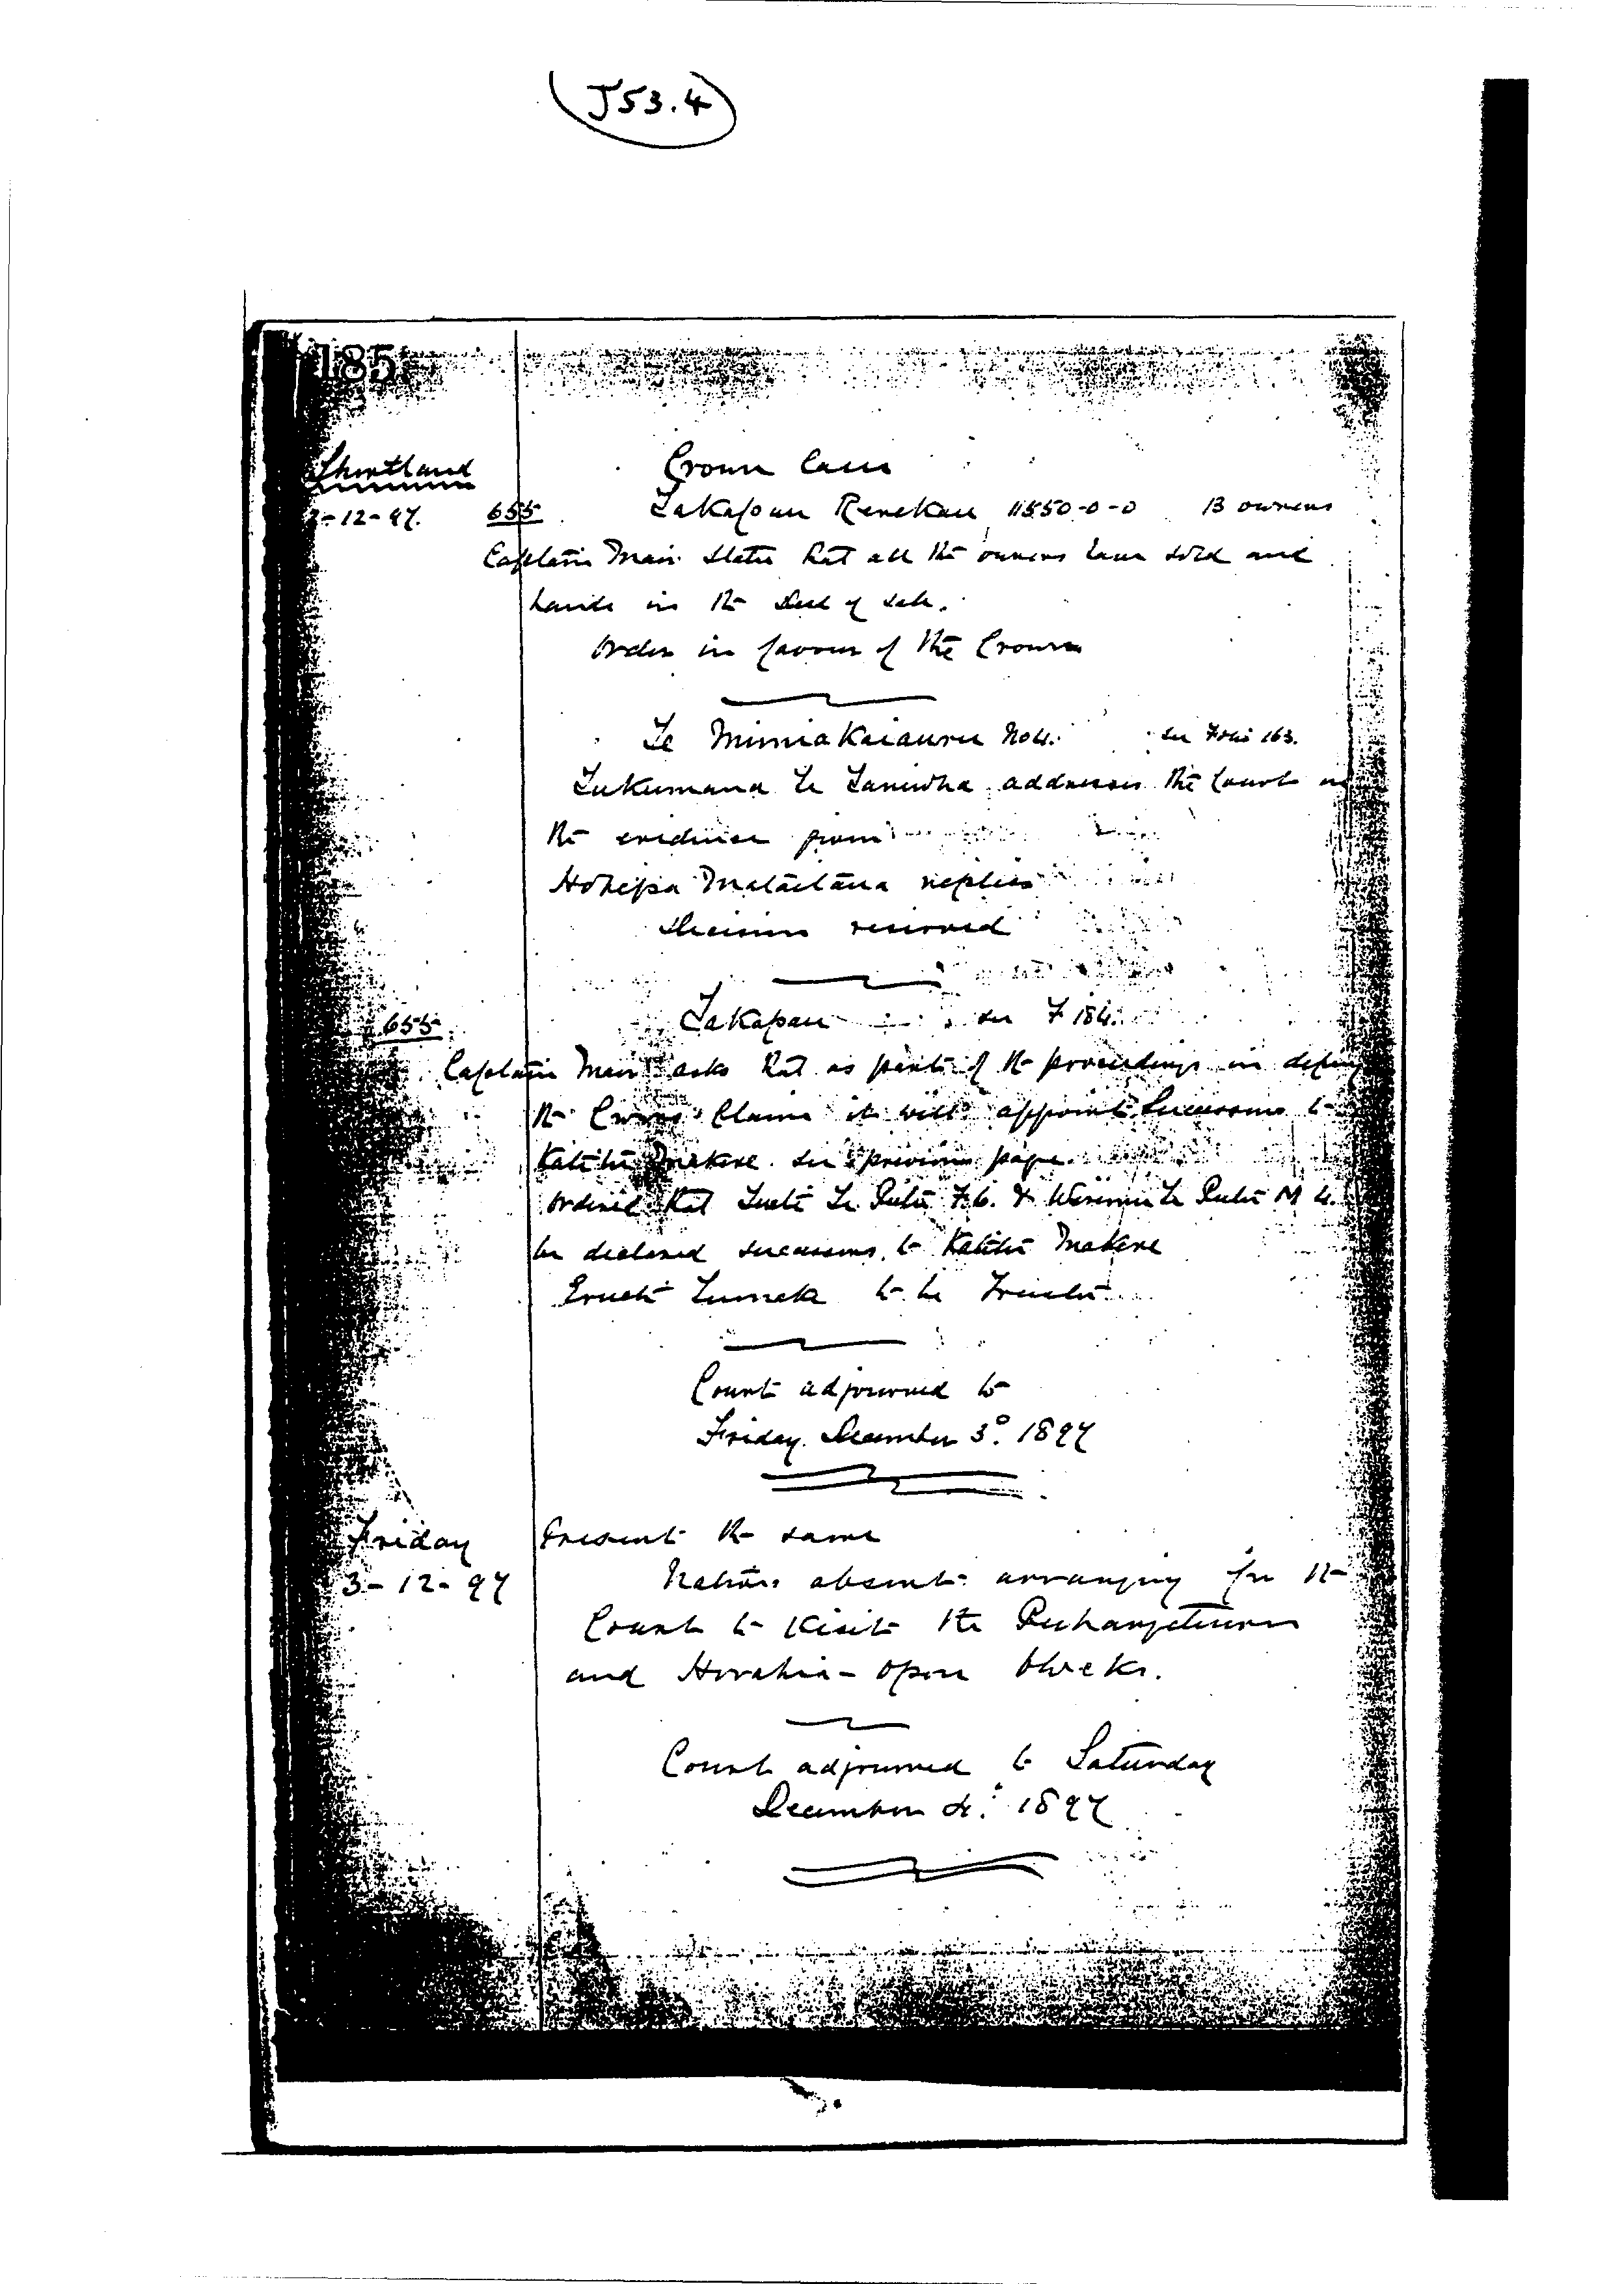 J53.4
185
Shortland
2-12-97.
Crown Case
655 Takapau Renekau 11550-0-0 13 owners
Captain Mair states that all the owners have sold and
hands in the deed of sale.
Order in favour of the Crown
Te Mimiakaiauru No 4. see Folio 163.
Tukumana Te Taniwha addresses the Court
the evidence given
Hohepa Mataitaua replies
decision reserved
655 Takapau see F 184.
Captain Mair asks that as part of the proceedings in
the Crowns Claim it will appoint Successors to
Makere see previous page.
Ordered that Te F.6. & Te M 4.
be declared successors to Makere
to be Trustee
Court adjourned to
Friday December 3° 1897
Friday Present the same
3-12-97 Natives absent arranging for the
Court to visit the
and Horahia-Opou blocks.
Court adjourned to Saturday
December 4. 1897